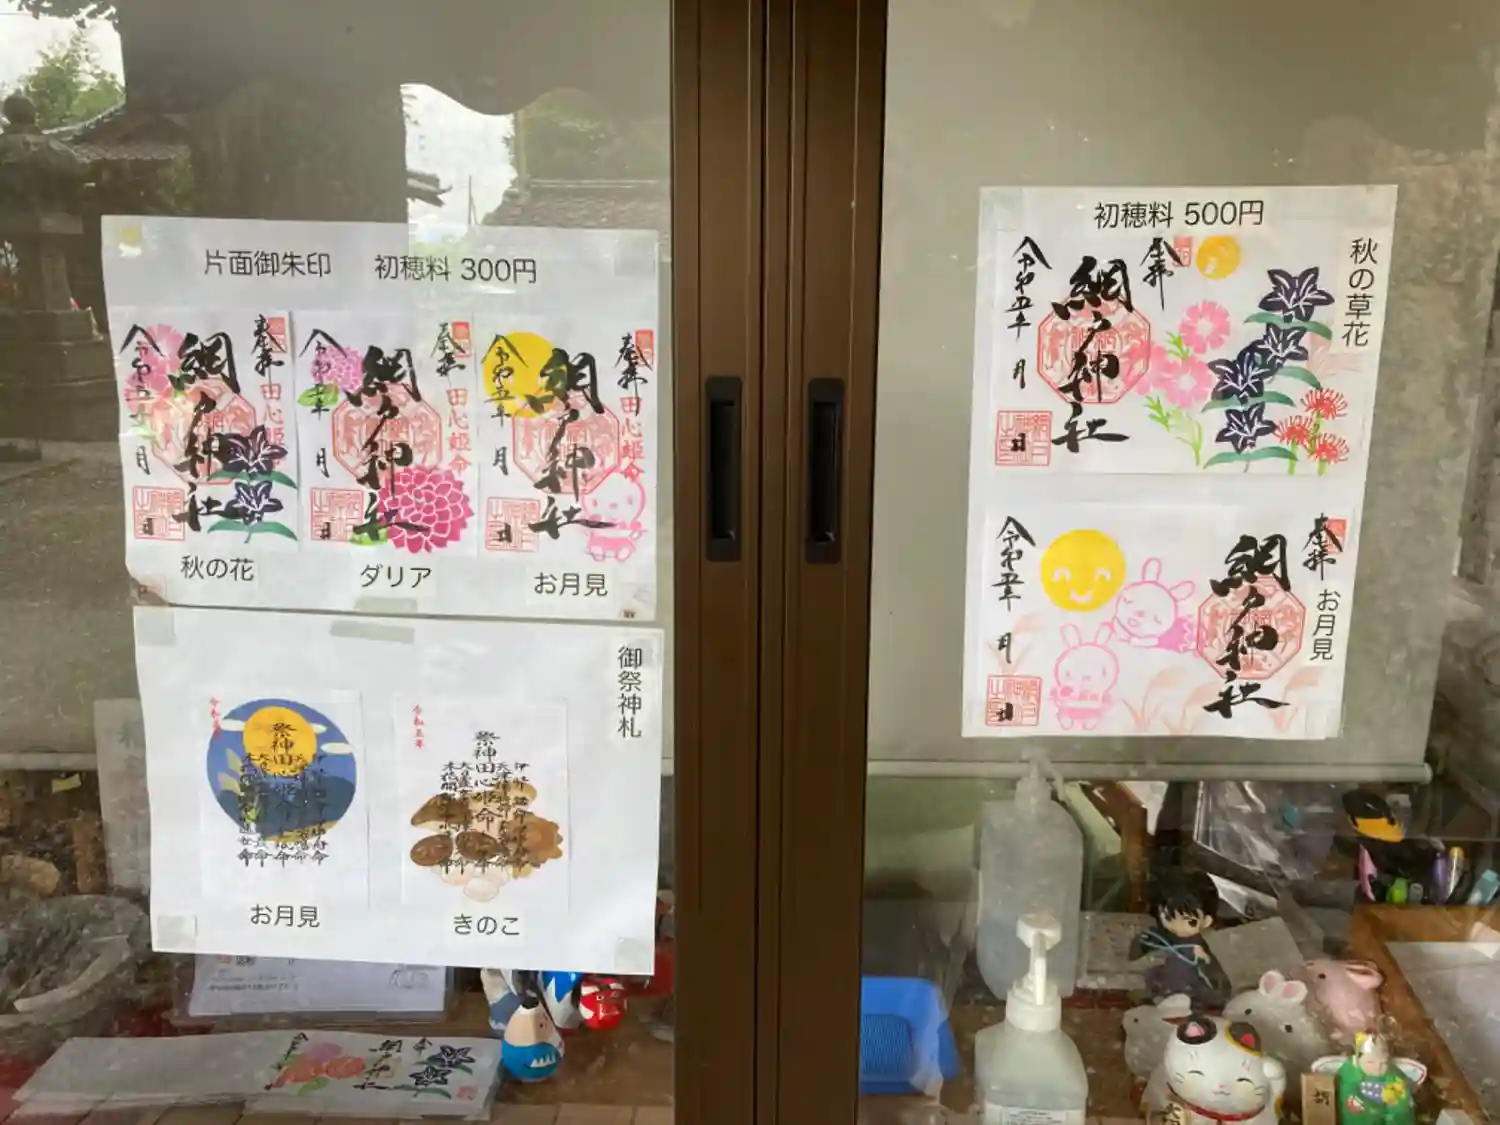 片面御朱印 初穂料 300円
奉拝
田心姫命
網戸神社
令和五年
月
日
秋の花
奉拝
田心姫命
網戸神社
令和五年
月
日
ダリア
奉拝
田心姫命
網戸神社
令和五年
月
日
お月見
御祭神札
令和五年
祭神田心姫命
お月見
令和五年
祭神田心姫命
きのこ
初穂料 500円
秋の草花
奉拝
網戸神社
令和五年
月
日
お月見
奉拝
網戸神社
令和五年
月
日